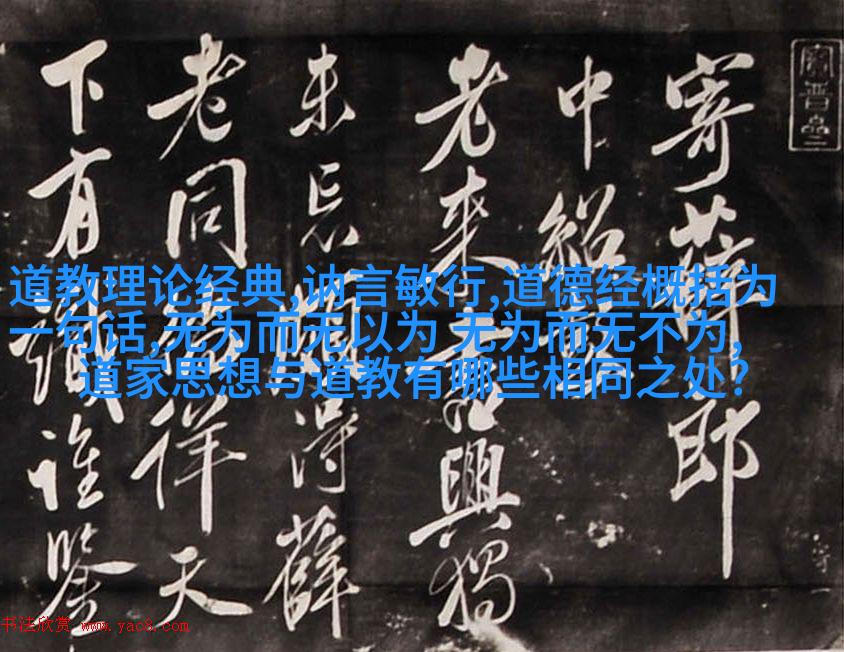 道教理论经典,讷言敏行,道德经概括为
一句话,无为而无以为 无为而无不为,
道家思想与道教有哪些相同之处?
寄薛郎
中紹
老来書興獨
未忘頗得薛
老同徜徉天
下有識誰鑒
书法欣赏 www.yac8.com